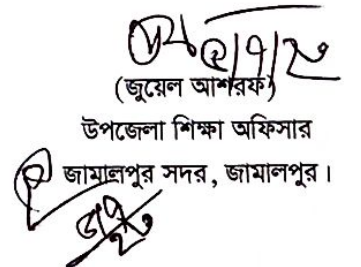 (জুয়েল আশরাফ)
উপজেলা শিক্ষা অফিসার
জামালপুর সদর, জামালপুর।